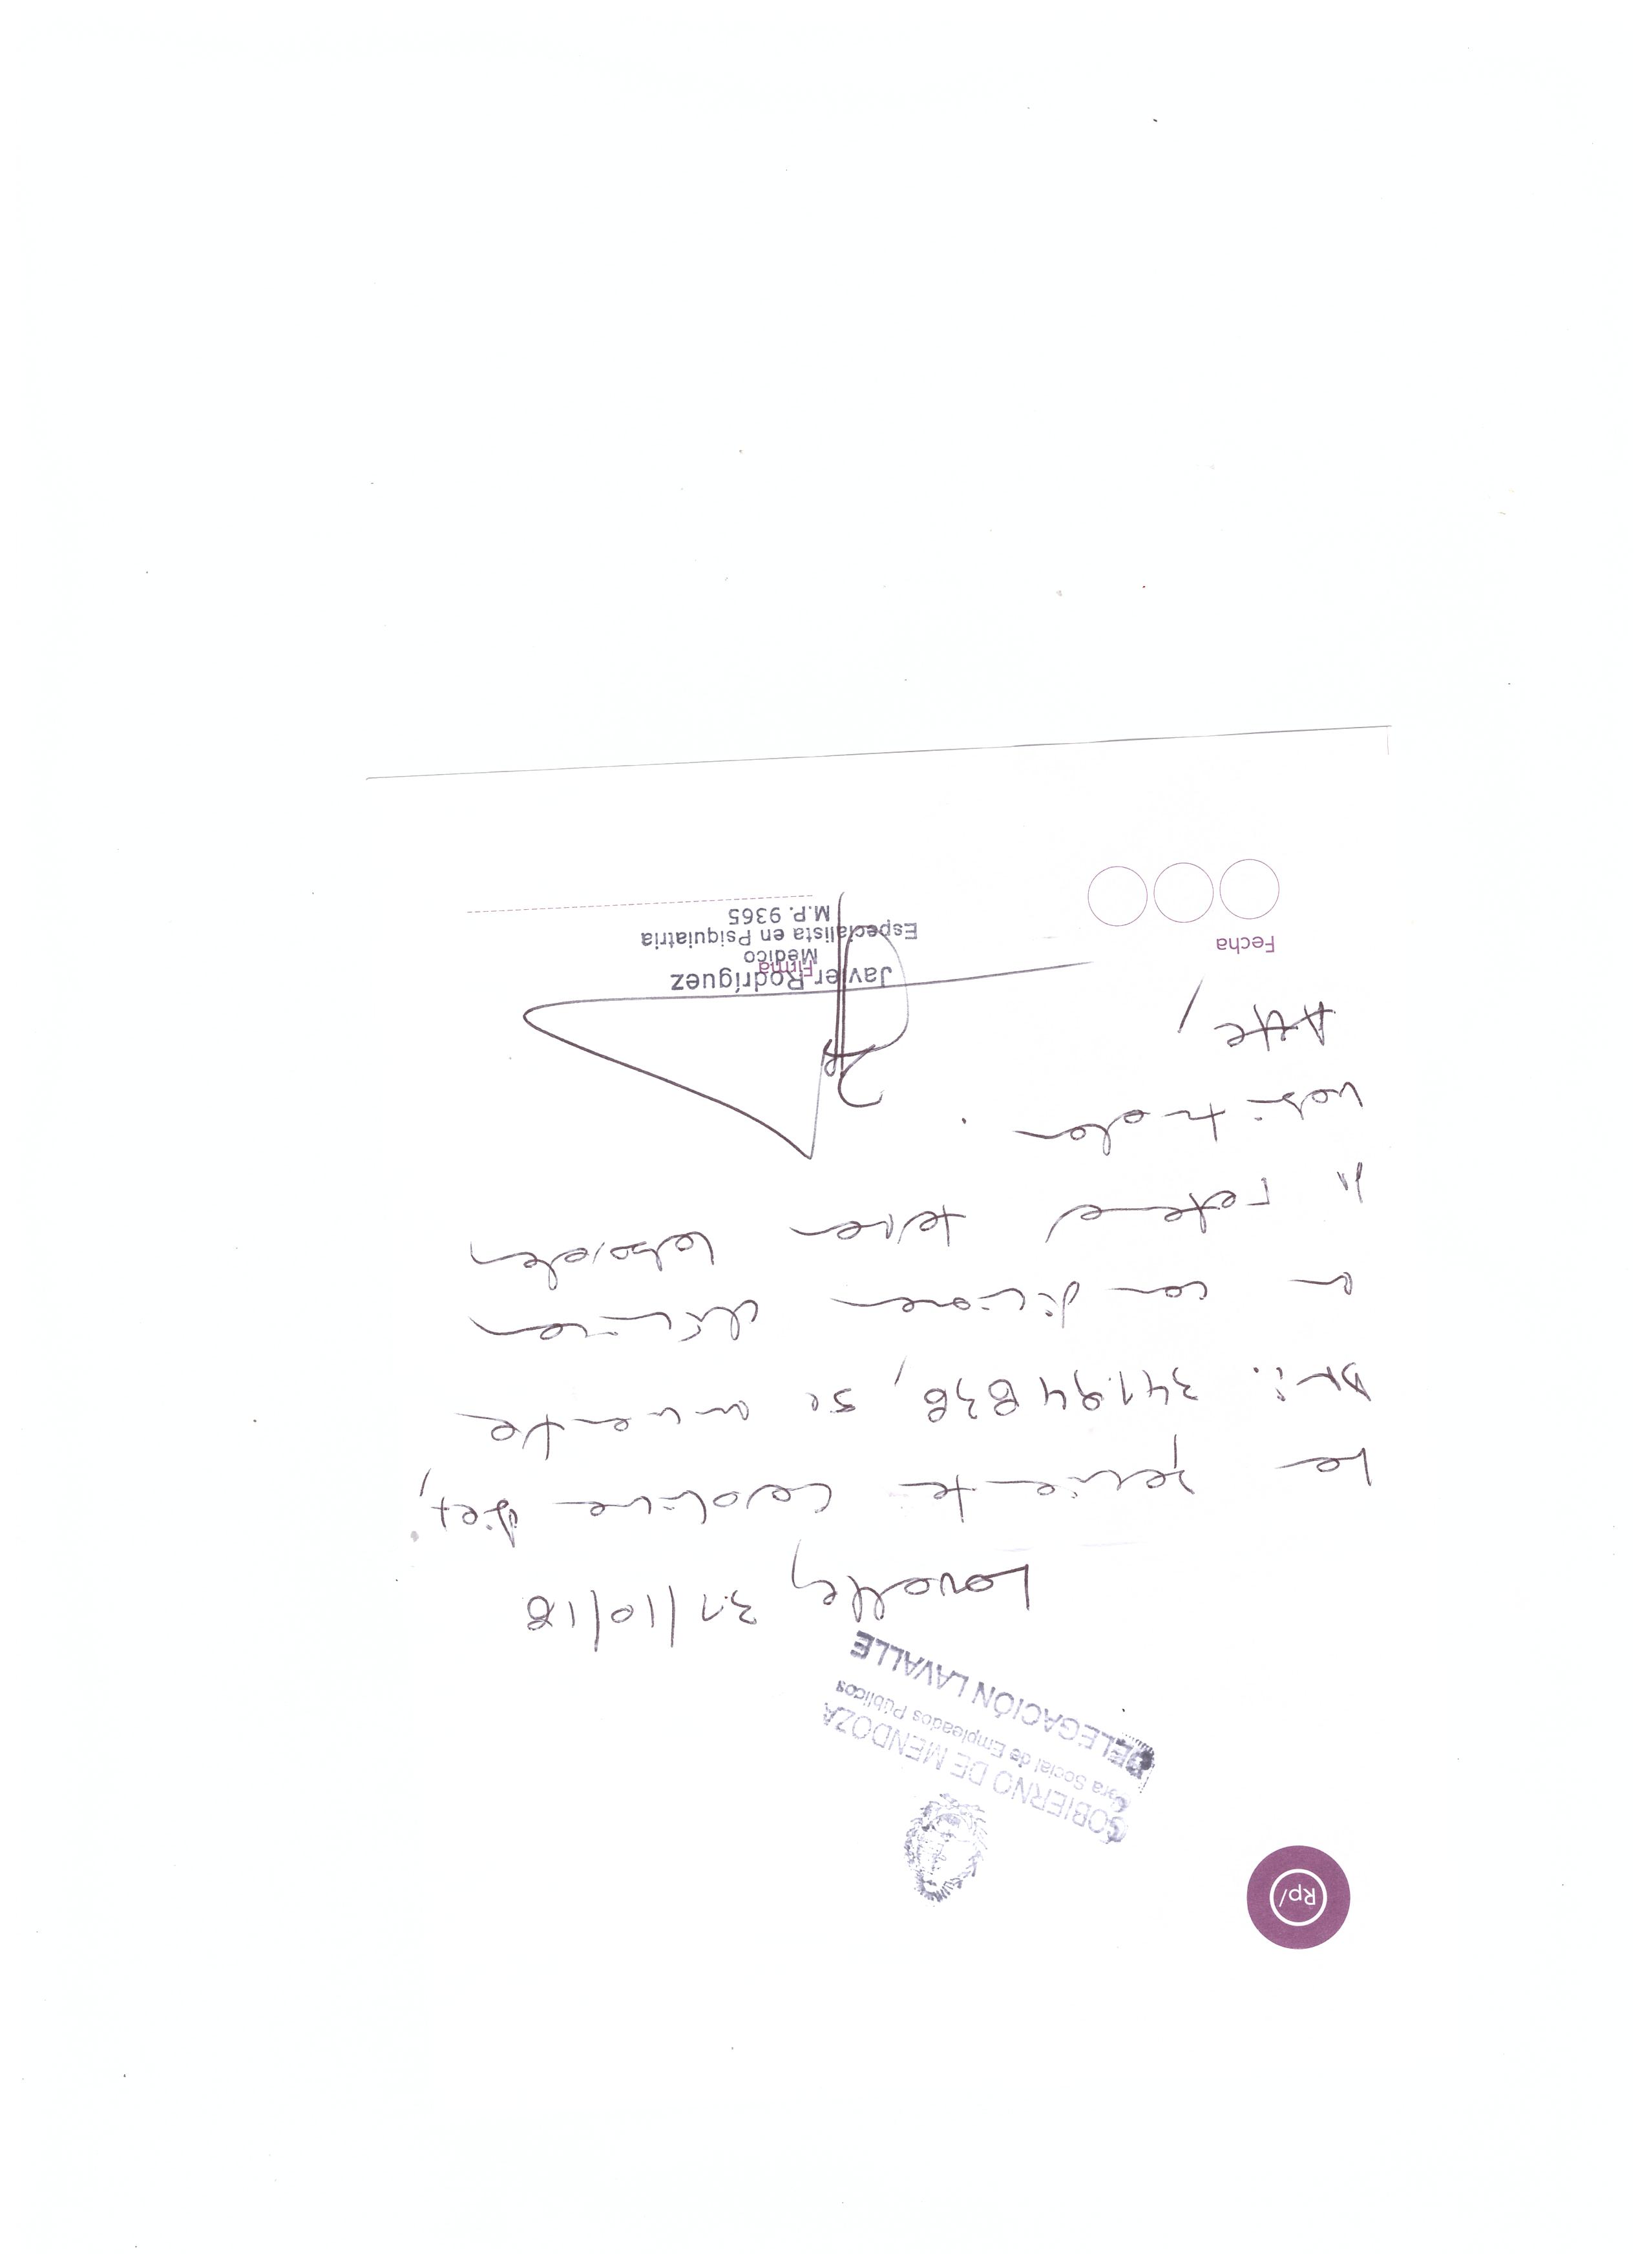 Rp/
GOBIERNO DE MENDOZA
Obra Social de Empleados Públicos
DELEGACIÓN LAVALLE
Lavalle, 31/10/18
La paciente Carolina Diaz,
DNI: 34194838, se encuentra
en condiciones clínicas
p/ retomar tareas laborales
habituales.
Atte,
Fecha
Firma
Javier Rodríguez
Médico
Especialista en Psiquiatria
M.P. 9365